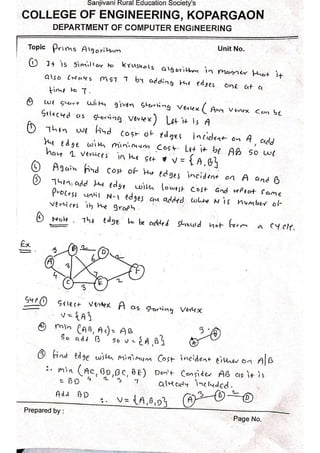 Sanjivani Rural Education Society's
COLLEGE OF ENGINEERING, KOPARGAON
DEPARTMENT OF COMPUTER ENGINEERING
Topic Prims Algorithm Unit No.
① It is similar to kruskals algorithm in manner that it
also creates MST T by adding the edges one at a
time to T.
② we start with given starting vertex (Any vertex can be
selected as starting vertex) Let it is A
③ Then we find cost of edges incident on A, add
the edge with minimum cost. Let it be AB so we
have 2 vertices in the set V = {A,B}
④ Again find cost of the edges incident on A and B
⑤ Then add the edge with lowest cost and repeat same
process until N-1 edges are added where N is number of
vertices in the graph.
⑥ Note. The edge to be added should not form a cycle.
Ex
A B C D E F
Step ① Select vertex A as starting vertex
V = {A}
② min (AB, AC) = AB
So add B so v = {A,B}
③ find edge with minimum cost incident either on A|B
∴ min (AC, BD, BC, BE) Don't consider AB as it is
= BD already included.
Add BD
∴ V = {A,B,D}
Prepared by :
Page No.